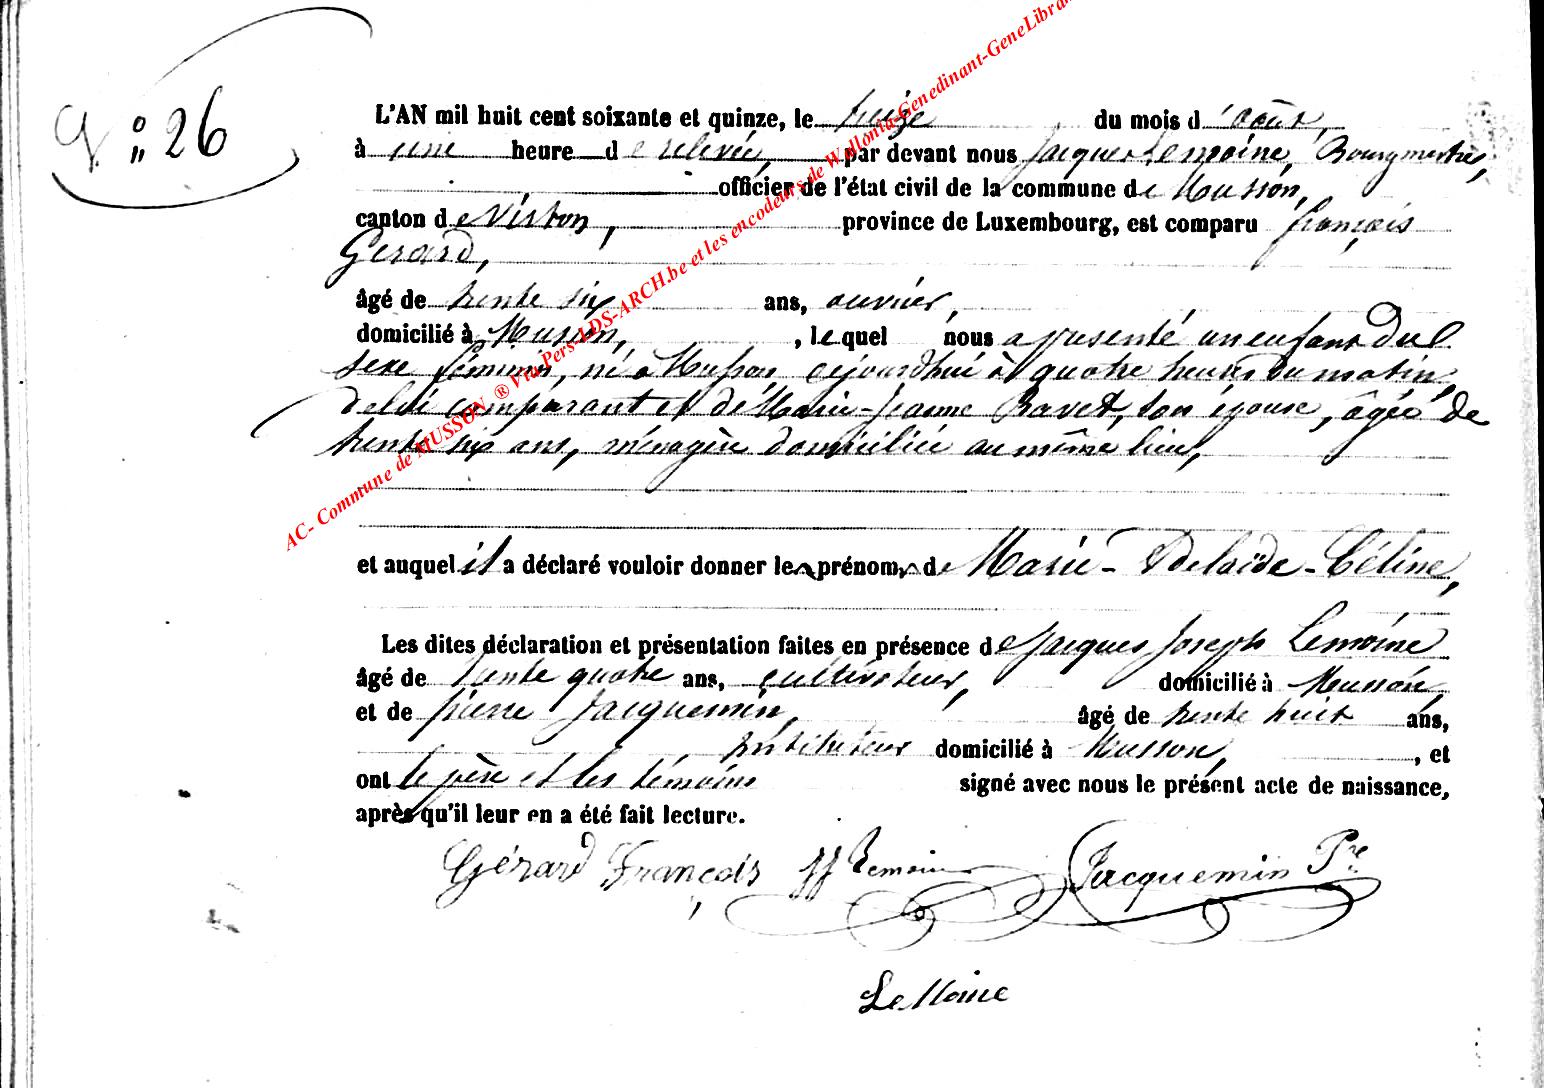 N° 26
L'AN mil huit cent soixante et quinze, le treize du mois d'août,
à une heure de relevée, par devant nous Jacques Lemoine, Bourgmestre,
officier de l'état civil de la commune de Musson,
canton de Virton, province de Luxembourg, est comparu françois
Gerard,
âgé de trente six ans, ouvrier,
domicilié à Musson, , lequel nous a présenté un enfant du
sexe féminin, né à Musson cejourd'hui à quatre heures du matin,
de lui comparant et de Marie-Jeanne Ravet, son épouse, âgée de
trente six ans, ménagère domiciliée au même lieu,
et auquel il a déclaré vouloir donner les prénoms de Marie-Adelaïde-Céline,
Les dites déclaration et présentation faites en présence de Jacques Joseph Lemoine
âgé de trente quatre ans, cultivateur, domicilié à Musson,
et de pierre Jacquemin, âgé de trente huit ans,
instituteur domicilié à Musson, , et
ont le père et les témoins signé avec nous le présent acte de naissance,
après qu'il leur en a été fait lecture.
Gérard François JJ Lemoine Jacquemin Pre
LeMoine
AC- Commune de MUSSON ® Via Pers-LDS-ARCH.be et les encodeurs de Wallonia-Genedinant-GeneLibra